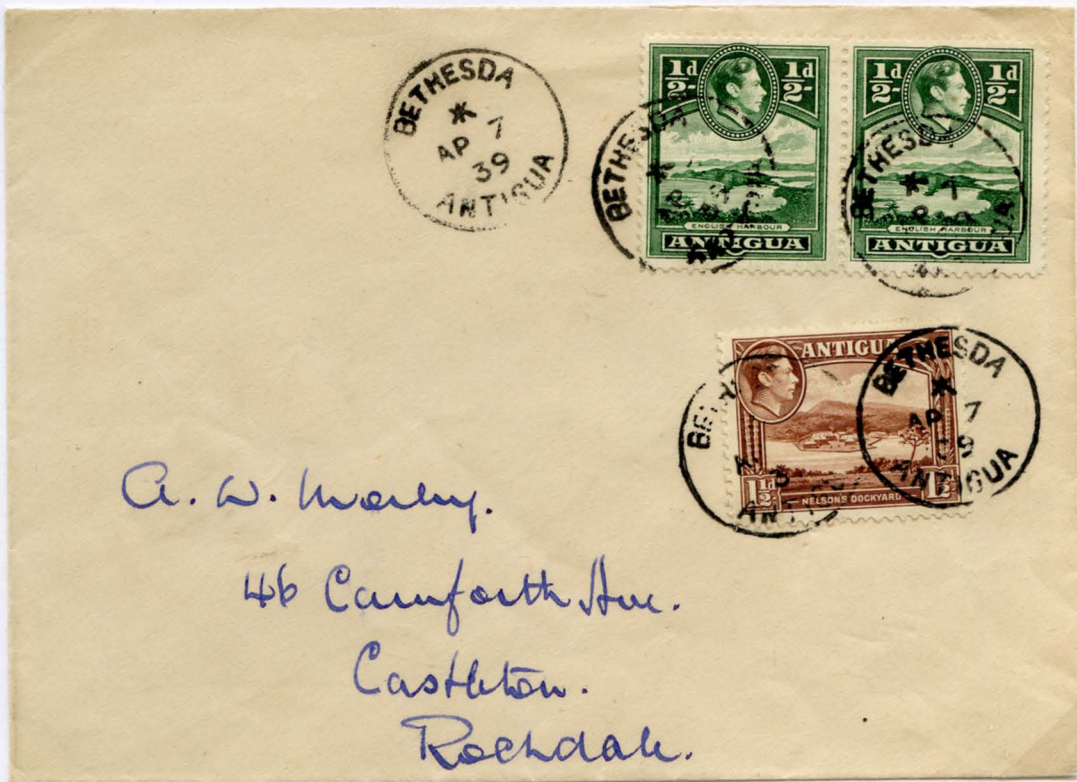 BETHESDA
AP 7
39
ANTIGUA
½d ½d
ENGLISH HARBOUR
ANTIGUA
½d ½d
ENGLISH HARBOUR
ANTIGUA
BETHESDA
BETHESDA
7
ANTIGUA
1½d 1½
NELSONS DOCKYARD
BETHESDA
AP 7
39
ANTIGUA
A. W. Morley.
46 Carnforth Ave.
Castleton.
Rochdale.